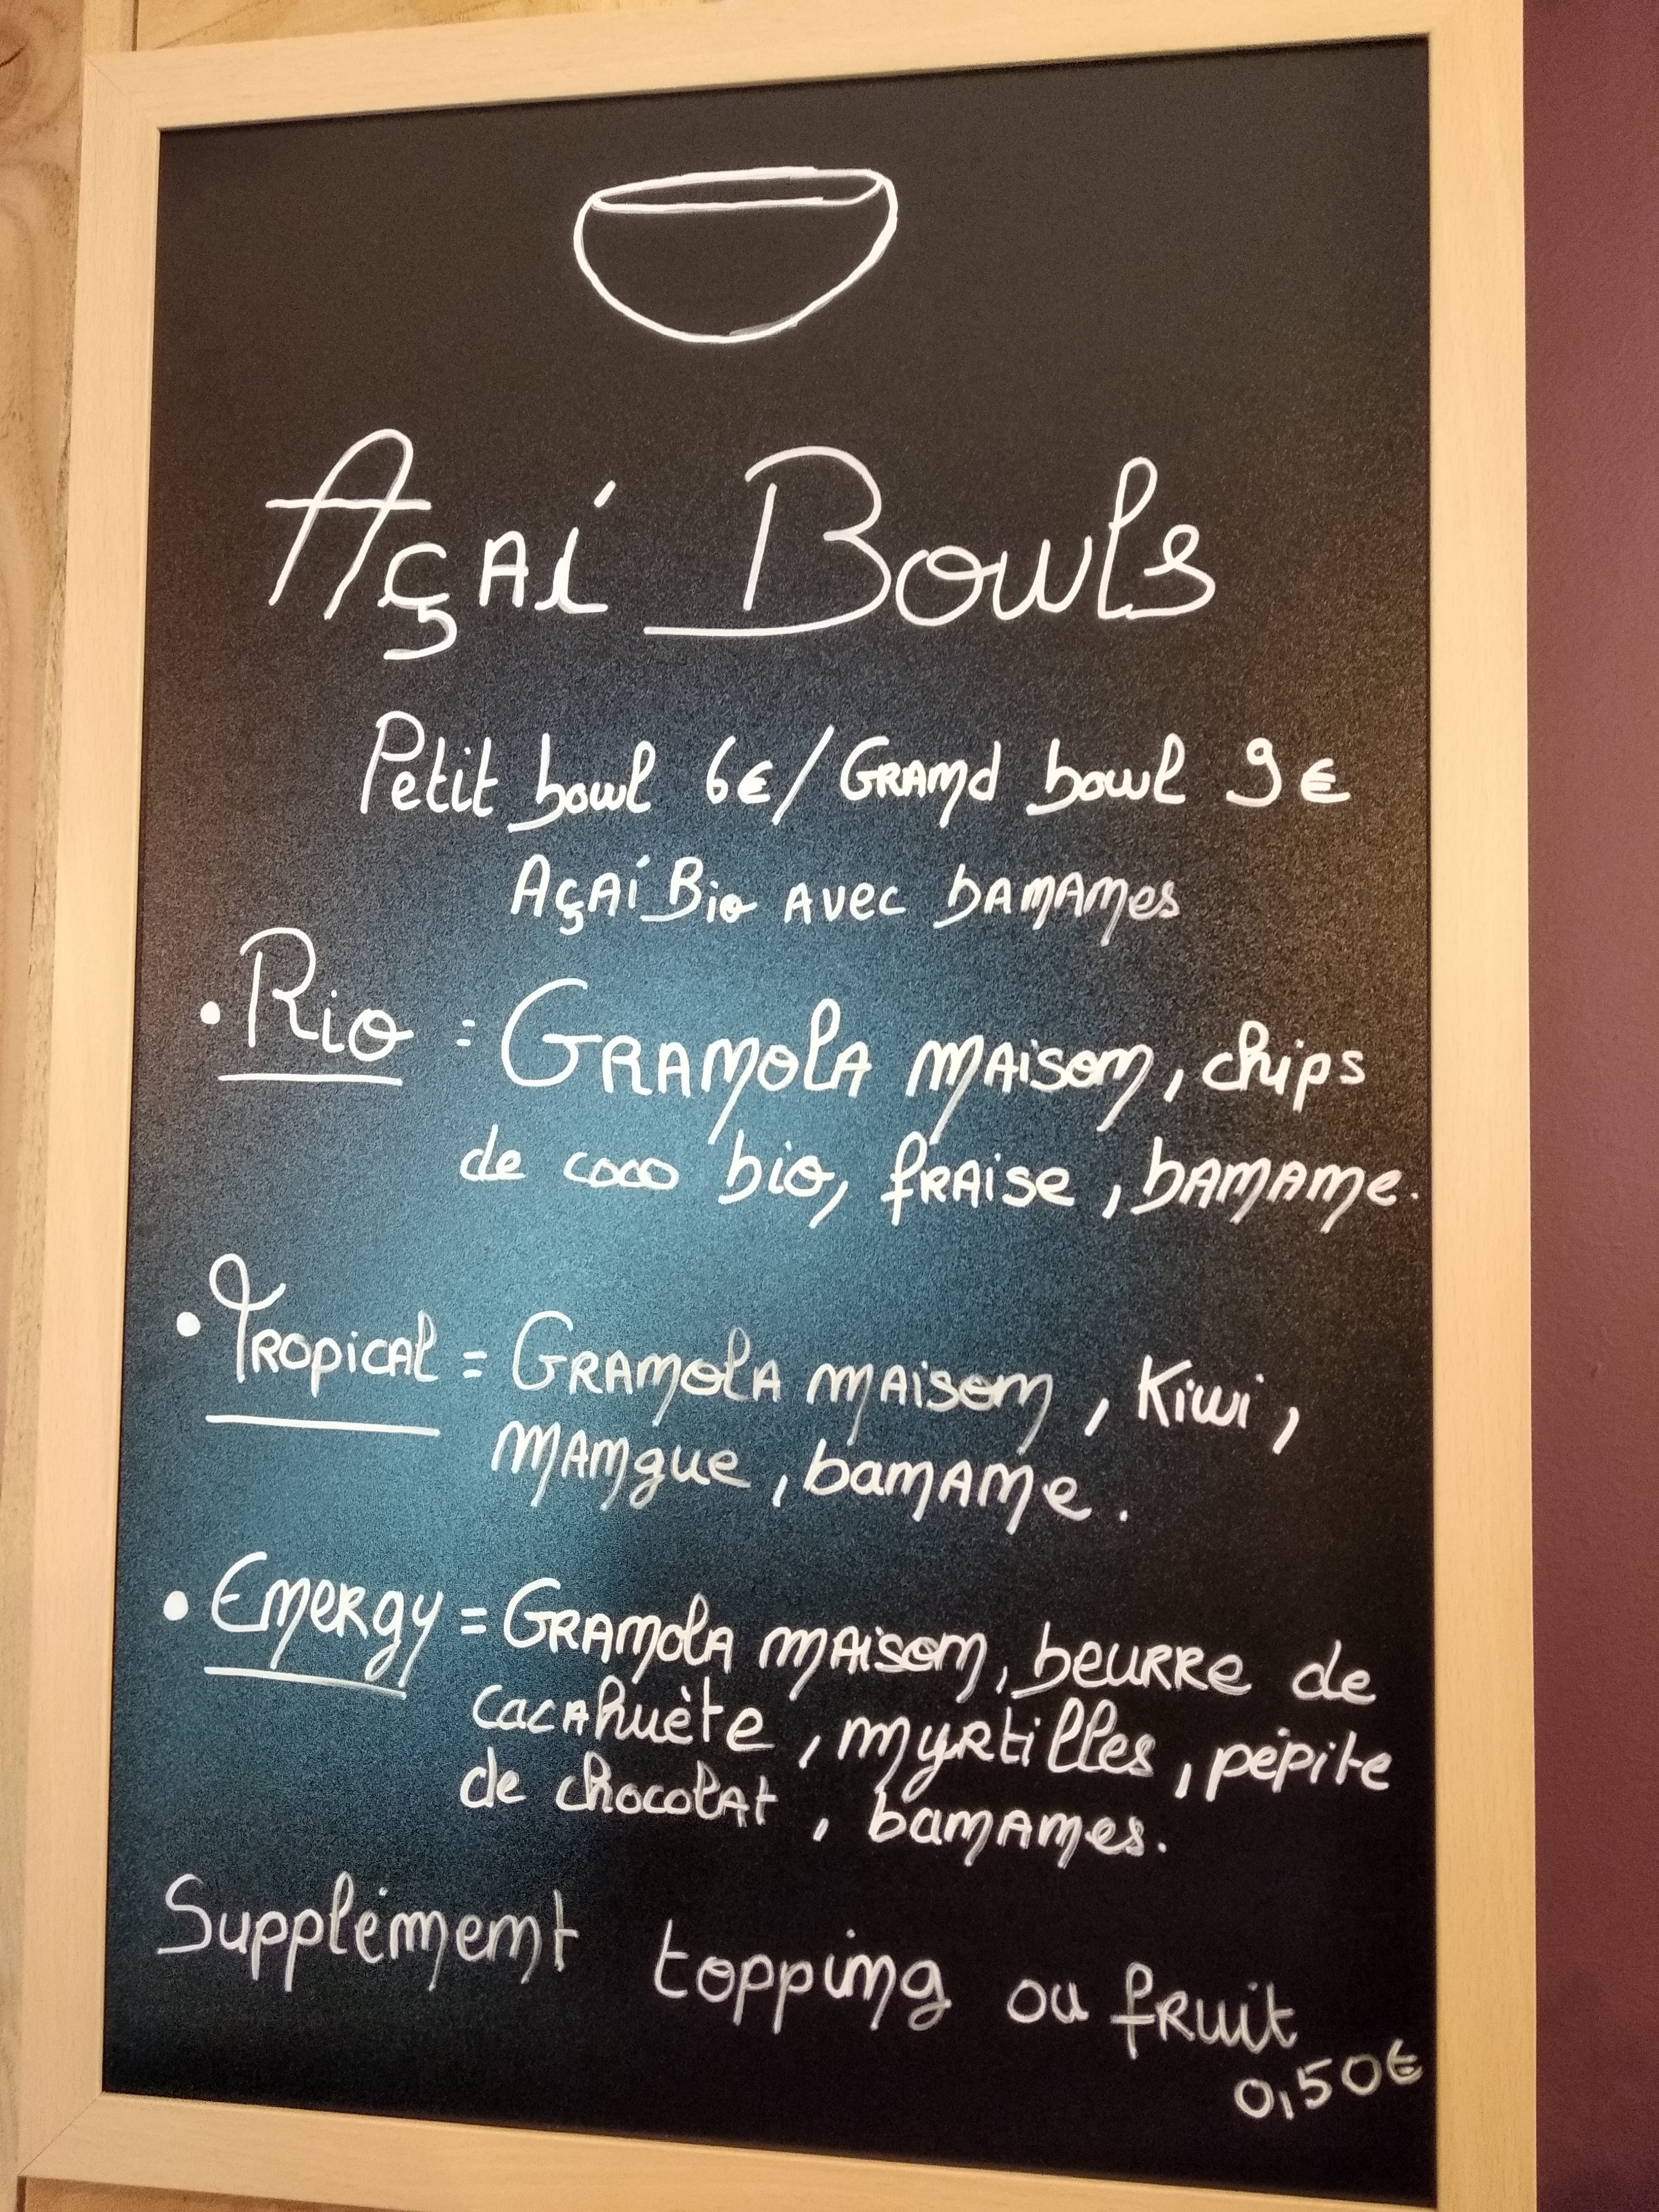 Açaí Bowls
Petit bowl 6€/Grand bowl 9€
Açaí Bio avec bananes
• Rio = Granola maison, chips
de coco bio, fraise, banane.
• Tropical = Granola maison, Kiwi,
mangue, banane.
• Energy = Granola maison, beurre de
cacahuète, myrtilles, pépite
de chocolat, bananes.
Supplément topping ou fruit
0,50€